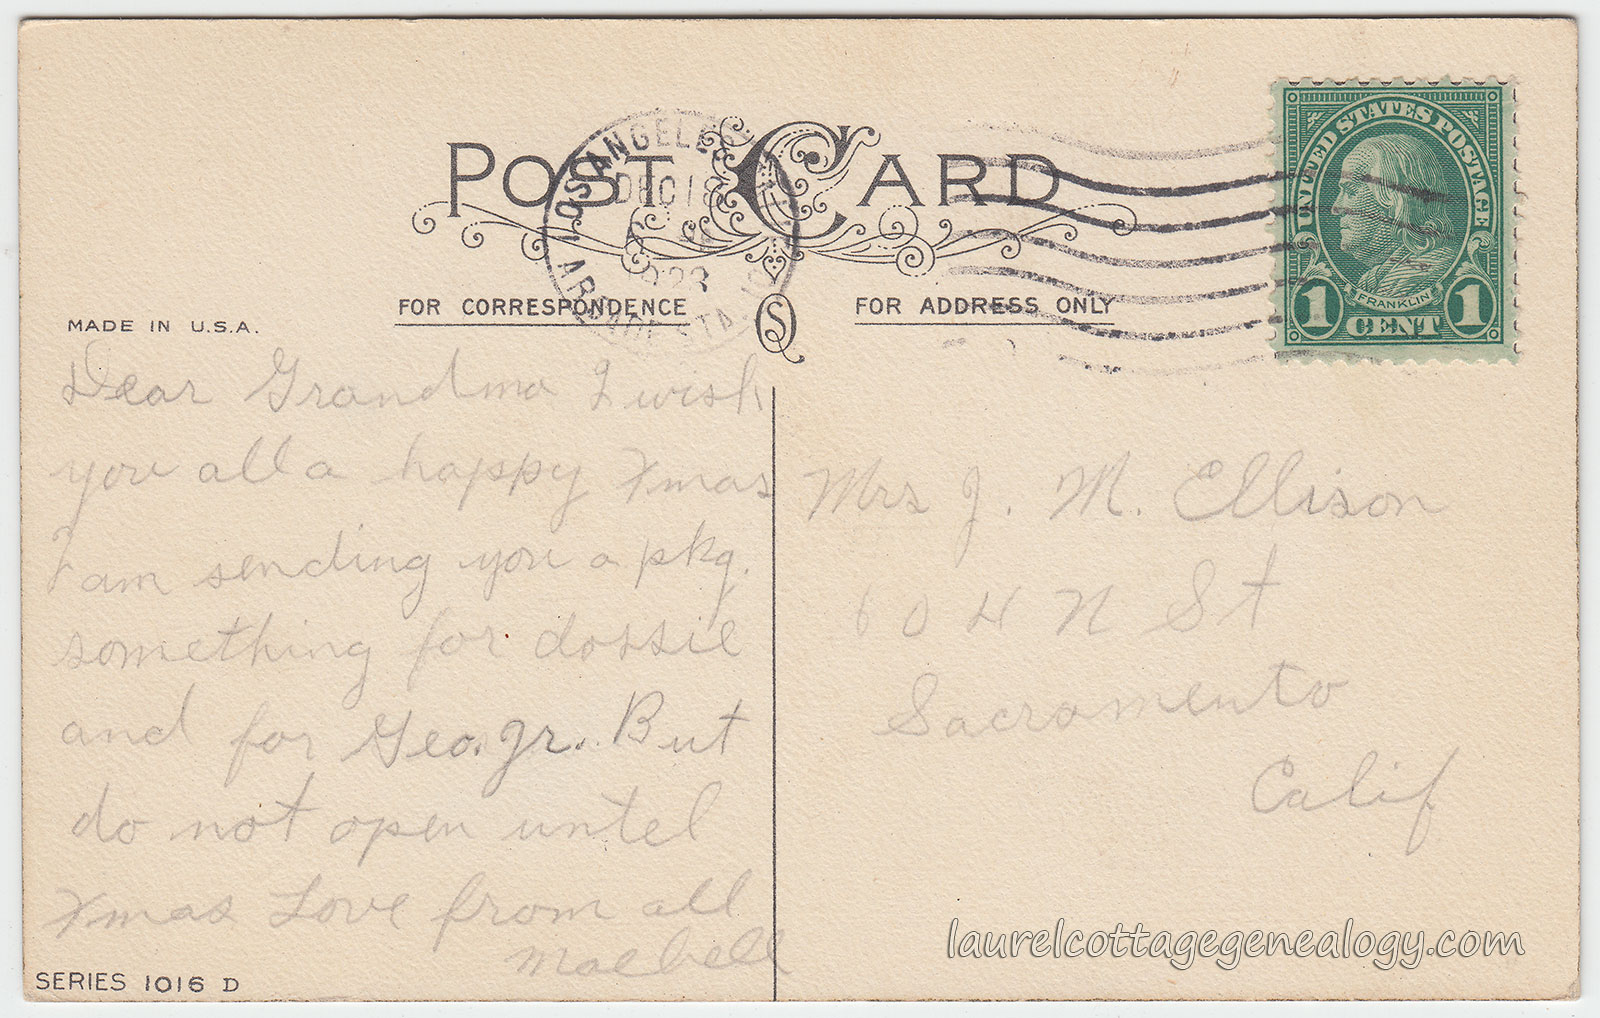 POST CARD
LOS ANGELES
DEC 18
1923
ARCADE STA.
FOR CORRESPONDENCE
FOR ADDRESS ONLY
MADE IN U.S.A.
UNITED STATES POSTAGE
FRANKLIN
1 CENT 1
Dear Grandma I wish
you all a happy Xmas
I am sending you a pkg.
something for dossie
and for Geo. Jr. But
do not open untel
Xmas Love from all
Maebell
Mrs J. M. Ellison
604 N St
Sacramento
Calif
SERIES 1016 D
laurelcottagegenealogy.com